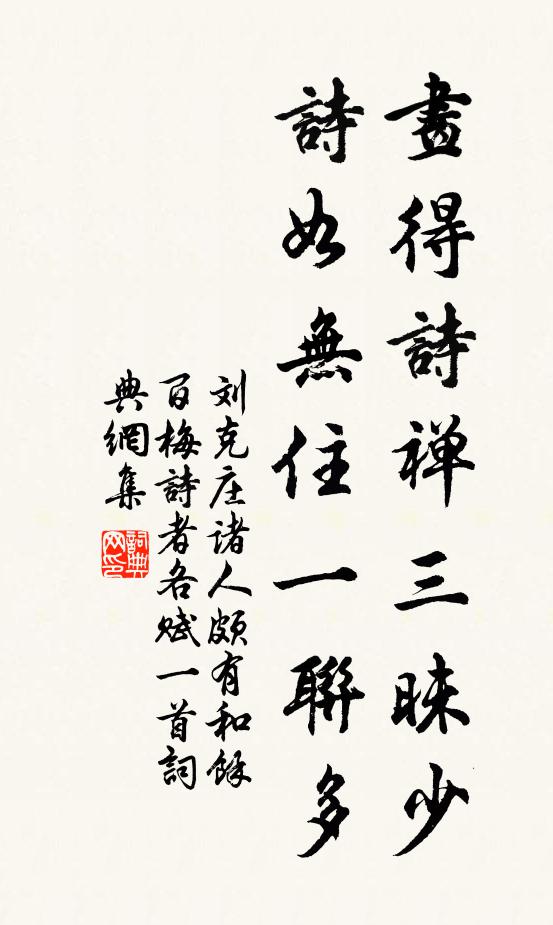 畫得詩禅三昧少
詩如無住一聯多
刘克庄諸人頗有和餘
百梅詩者各赋一首詞
典網集
詞典网印